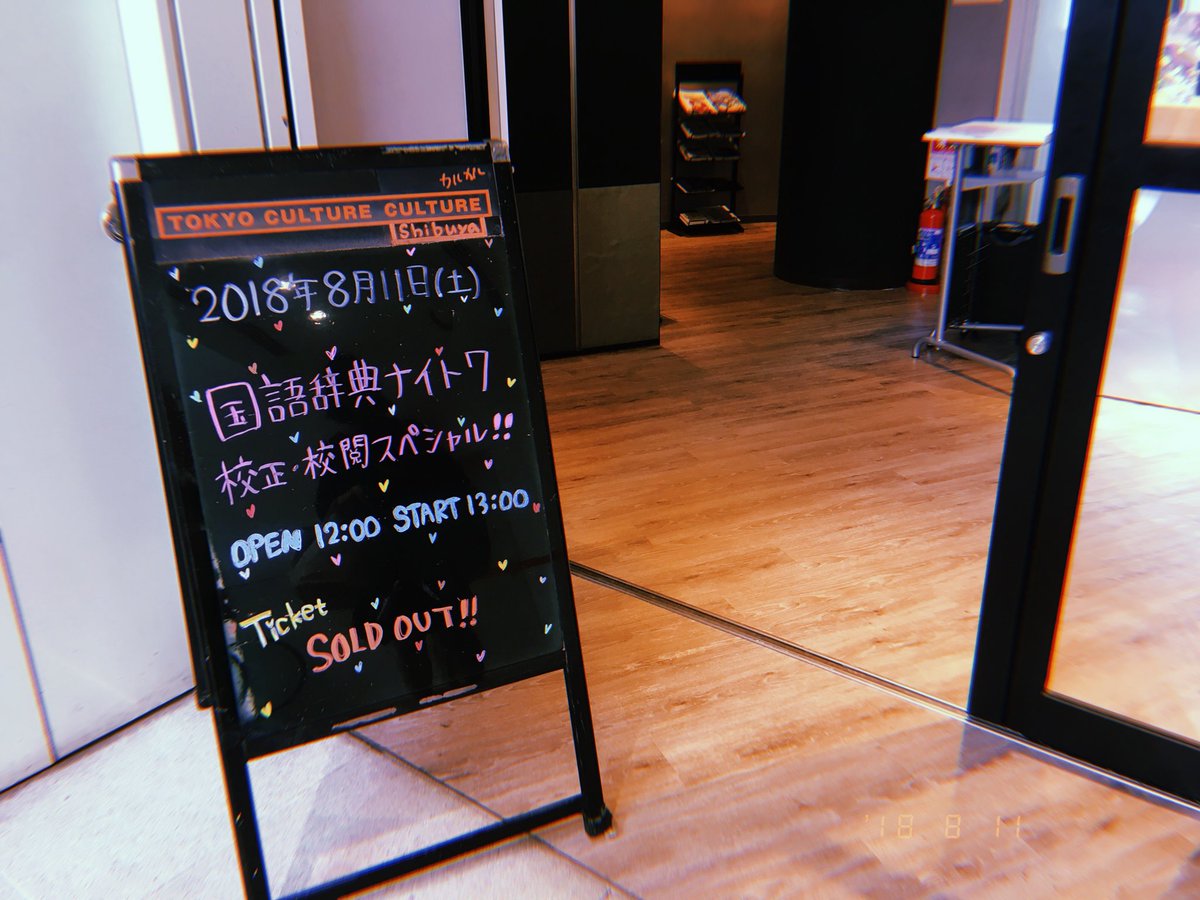 カルカル
TOKYO CULTURE CULTURE
Shibuya
2018年8月11日(土)
国語辞典ナイト7
校正・校閲スペシャル!!
OPEN 12:00 START 13:00
Ticket
SOLD OUT!!
'18 8 11